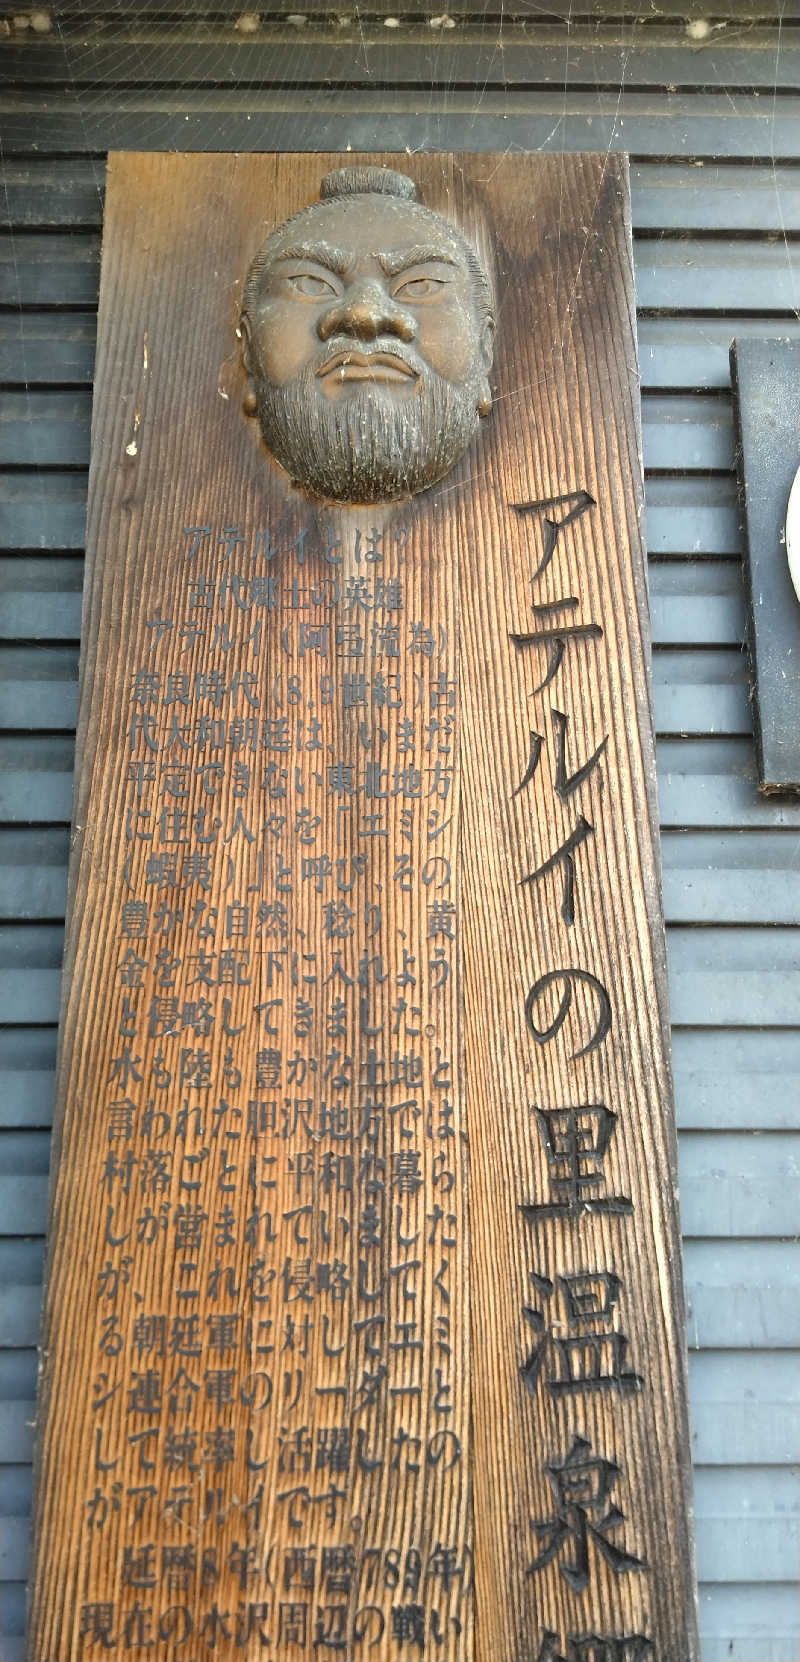 アテルイの里温泉郷
アテルイとは?
古代郷土の英雄
アテルイ(阿弖流為)
奈良時代(8,9世紀)古
代大和朝廷は、いまだ
平定できない東北地方
に住む人々を「エミシ
(蝦夷)」と呼び、その
豊かな自然、稔り、黄
金を支配下に入れよう
と侵略してきました。
水も陸も豊かな土地と
言われた胆沢地方では
村落ごとに平和な暮ら
しが営まれていました
が、これを侵略してく
る朝廷軍に対してエミ
シ連合軍のリーダーと
して統率し活躍したの
がアテルイです。
延暦8年(西暦789年)
現在の水沢周辺の戦い